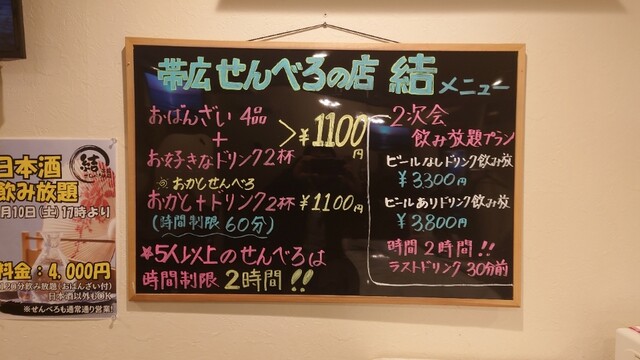 帯広せんべろの店 結 メニュー
おばんざい 4品
+
お好きなドリンク2杯
¥1100円
おかしせんべろ
おかし+ドリンク2杯 ¥1100円
(時間制限60分)
★5人以上のせんべろは
時間制限 2時間!!
2次会
飲み放題プラン
ビールなしドリンク飲み放
¥3300円
ビールありドリンク飲み放
¥3,800円
時間2時間!!
ラストドリンク30分前
結
日本酒
飲み放題
月10日(土)17時より
料金:4,000円
120分飲み放題(おばんざい付)
日本酒以外もOK
※せんべろも通常通り営業!